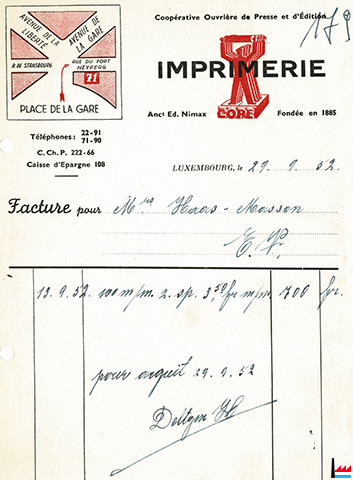 Coopérative Ouvrière de Presse et d'Édition
179
AVENUE DE LA LIBERTÉ
AVENUE DE LA GARE
R. DE STRASBOURG
RUE DU FORT NEYPERG
71
PLACE DE LA GARE
IMPRIMERIE
COPE
Anct Ed. Nimax
Fondée en 1885
Téléphones: 22-91
71-90
C. Ch. P. 222-66
Caisse d'Epargne 108
LUXEMBOURG, le 29. 9. 52.
Facture pour Mrs Haas - Masson
13.9.52. 100 m/m. 2. sp. 3,50 fr m/m 700 fr.
pour acquit 29.9.52